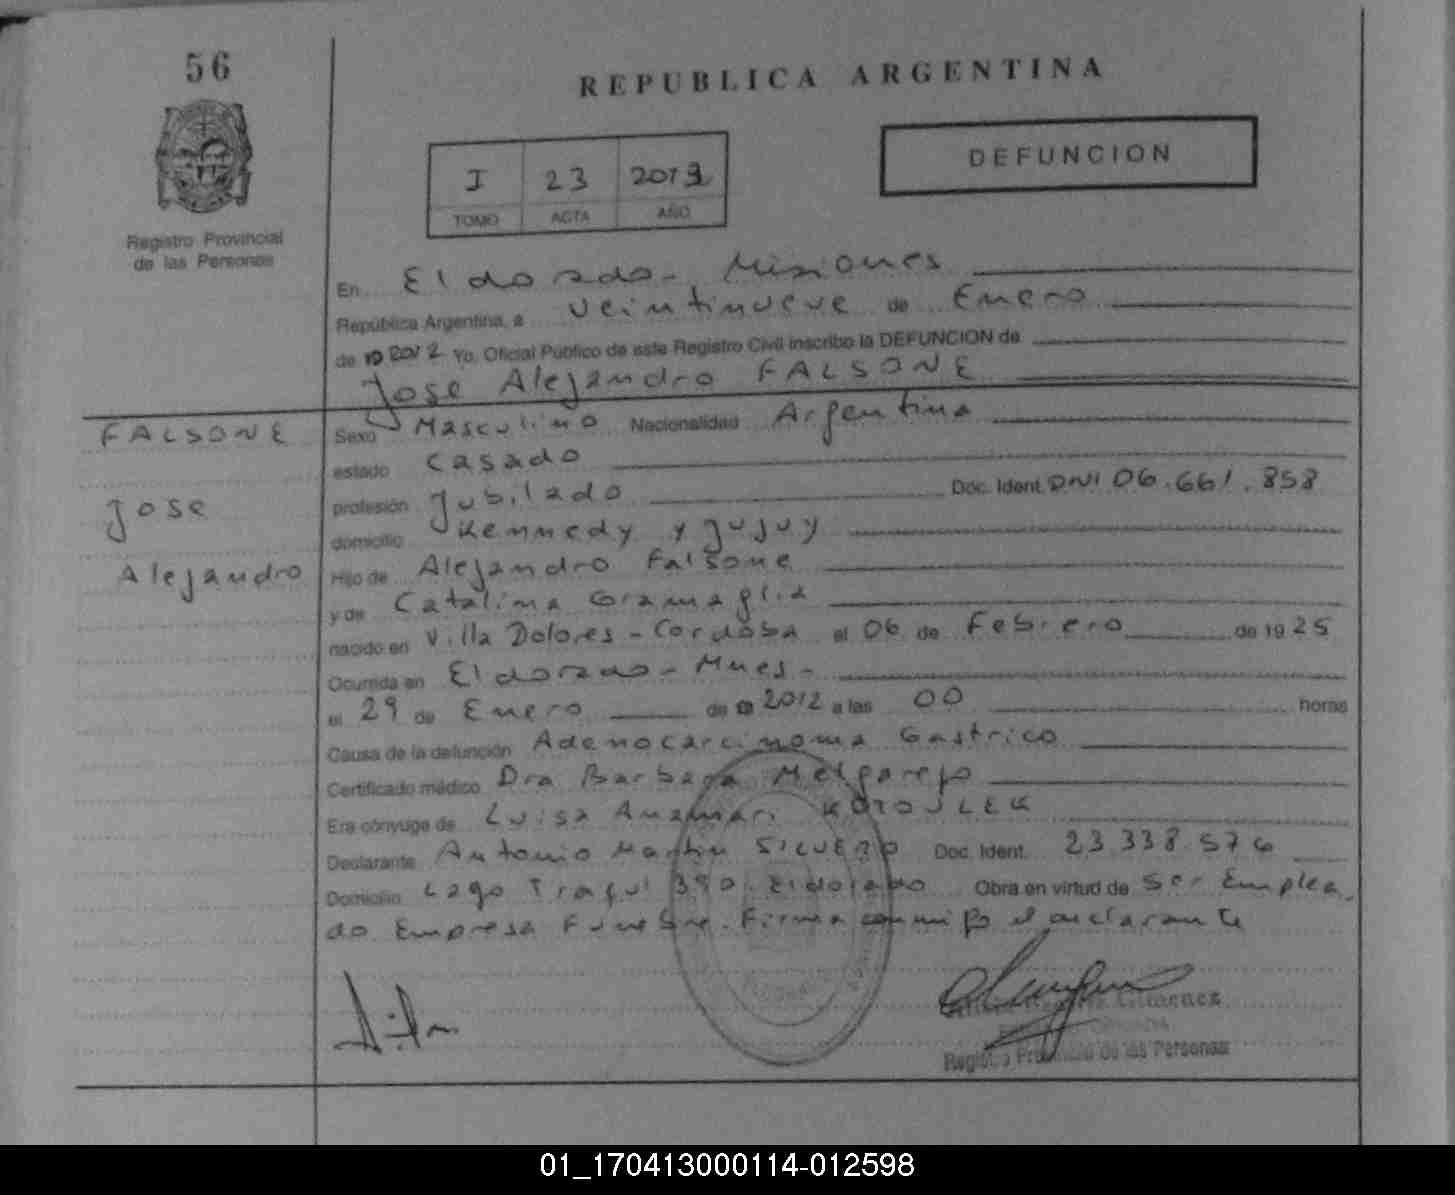 56
REPUBLICA ARGENTINA
DEFUNCION
I 23 2012
TOMO ACTA AÑO
Registro Provincial
de las Personas
En Eldorado - Misiones
República Argentina, a veintinueve de Enero
de 2012 Yo, Oficial Público de este Registro Civil inscribo la DEFUNCION de
Jose Alejandro FALSONE
FALSONE
Jose
Alejandro
Sexo Masculino Nacionalidad Argentina
estado Casado
profesión Jubilado Doc. Ident. DNI 06.661.858
domicilio Kennedy y Jujuy
Hijo de Alejandro Falsone
y de Catalina Gramaglia
nacido en Villa Dolores - Cordoba el 06 de Febrero de 1925
Ocurrida en Eldorado - Mnes -
el 29 de Enero de 2012 a las 00 horas
Causa de la defunción Adenocarcinoma Gastrico
Certificado médico Dra Barbara Melgarejo
Era cónyuge de Luisa
Declarante Antonio Martin Doc. Ident. 23.338.576
Domicilio Lago Traful 390. Eldorado Obra en virtud de Ser Emplea
do Empresa Funebre. Firma conmigo el declarante
Gimenez
Registro Provincial de las Personas
01_170413000114-012598